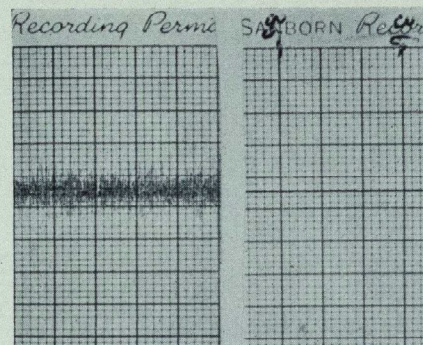 Recording Permi
SANBORN Recor